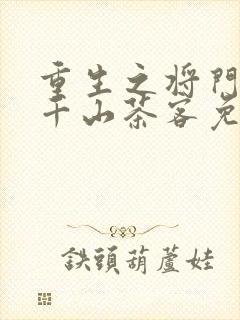 重生之将門
千山茶客免
鉄頭葫蘆娃